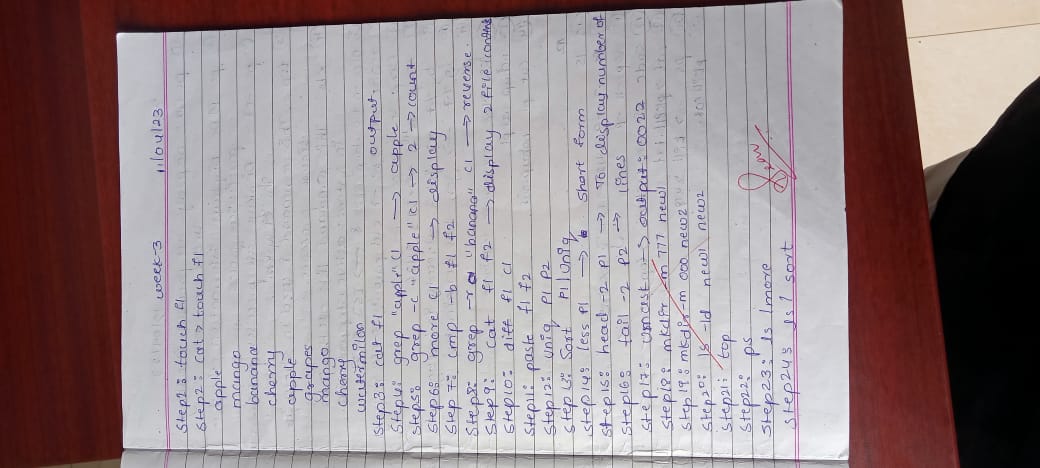 week-3 11/04/23
Step1: touch f1
Step2: cat > touch f1
apple
mango
banana
cherry
apple
grapes
mango
cherry
watermilon
Step3: cat f1 output.
Step4: grep "apple" c1 → apple
Step5: grep -c "apple" c1 → 2 → count
Step6: more c1 → display
Step 7: cmp -b f1 f2
Step8: grep -r "banana" c1 → reverse.
Step 9: cat f1 f2 → display 2 file contine
Step10: diff f1 c1
Step11: paste f1 f2
Step12: uniq p1 p2
Step 13: Sort p1|uniq
Step14: less p1 → short form
Step15: head -2 p1 → To display number of
Step16: tail -2 p2 → lines
Step17: umast → output: 0022
Step18: mkdir -m 777 new1
Step19: mkdir -m 000 new2
Step20: ls -ld new1 new2
Step21: top
Step22: ps
Step23: ls |more
Step24: ls | sort